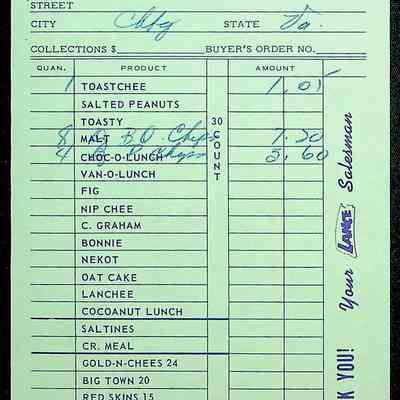 STREET
CITY Chtg STATE Va.
COLLECTIONS $ BUYER'S ORDER NO.
QUAN. PRODUCT AMOUNT
1 TOASTCHEE 1.05
SALTED PEANUTS
TOASTY 30
8 MALT B.Q. Chips COUNT 7.20
4 CHOC-O-LUNCH 5.60
VAN-O-LUNCH
FIG
NIP CHEE
C. GRAHAM
BONNIE
NEKOT
OAT CAKE
LANCHEE
COCOANUT LUNCH
SALTINES
CR. MEAL
GOLD-N-CHEES 24
BIG TOWN 20
RED SKINS 15
K YOU! Your LANCE Salesman